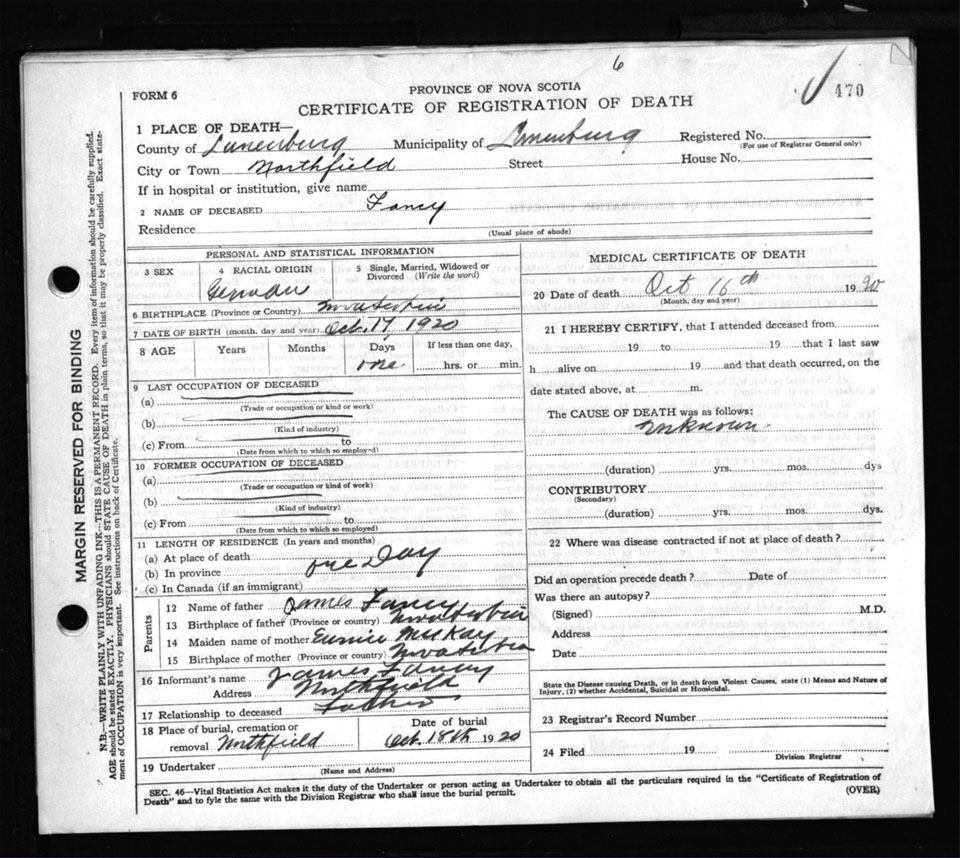 6
470
FORM 6
PROVINCE OF NOVA SCOTIA
CERTIFICATE OF REGISTRATION OF DEATH
1 PLACE OF DEATH—
County of Lunenburg Municipality of Lunenburg Registered No.
(For use of Registrar General only)
City or Town Northfield Street House No.
If in hospital or institution, give name
2 NAME OF DECEASED Fancy
Residence
(Usual place of abode)
PERSONAL AND STATISTICAL INFORMATION
3 SEX 4 RACIAL ORIGIN 5 Single, Married, Widowed or Divorced (Write the word)
6 BIRTHPLACE (Province or Country) Nova Scotia
7 DATE OF BIRTH (month, day and year) Oct. 17, 1920
8 AGE Years Months Days If less than one day,
one hrs. or min.
9 LAST OCCUPATION OF DECEASED
(a)
(Trade or occupation or kind or work)
(b)
(Kind of industry)
(c) From to
(Date from which to which so employed)
10 FORMER OCCUPATION OF DECEASED
(a)
(Trade or occupation or kind of work)
(b)
(Kind of industry)
(c) From to
(Date from which to which so employed)
11 LENGTH OF RESIDENCE (In years and months)
(a) At place of death
(b) In province one Day
(c) In Canada (if an immigrant)
Parents
12 Name of father James Fancy
13 Birthplace of father (Province or country) Nova Scotia
14 Maiden name of mother Eunice McKay
15 Birthplace of mother (Province or country) Nova Scotia
16 Informant's name James Fancy
Address Northfield
17 Relationship to deceased Father
18 Place of burial, cremation or removal Northfield
Date of burial
Oct. 18th 1920
19 Undertaker
(Name and Address)
MEDICAL CERTIFICATE OF DEATH
20 Date of death Oct 16th 1920
(Month, day and year)
21 I HEREBY CERTIFY, that I attended deceased from
19 to 19 that I last saw
h alive on 19 and that death occurred, on the
date stated above, at m.
The CAUSE OF DEATH was as follows:
Unknown
(duration) yrs. mos. dys
CONTRIBUTORY
(Secondary)
(duration) yrs. mos. dys.
22 Where was disease contracted if not at place of death?
Did an operation precede death? Date of
Was there an autopsy?
(Signed) M.D.
Address
Date
State the Disease causing Death, or in death from Violent Causes, state (1) Means and Nature of
Injury, (2) whether Accidental, Suicidal or Homicidal.
23 Registrar's Record Number
24 Filed 19
Division Registrar
SEC. 46—Vital Statistics Act makes it the duty of the Undertaker or person acting as Undertaker to obtain all the particulars required in the "Certificate of Registration of
Death" and to fyle the same with the Division Registrar who shall issue the burial permit.
(OVER)
MARGIN RESERVED FOR BINDING
N.B.—WRITE PLAINLY WITH UNFADING INK—THIS IS A PERMANENT RECORD. Every item of information should be carefully supplied.
AGE should be stated EXACTLY. PHYSICIANS should STATE CAUSE OF DEATH in plain terms, so that it may be properly classified. Exact state-
ment of OCCUPATION is very important. See instructions on back of Certificate.